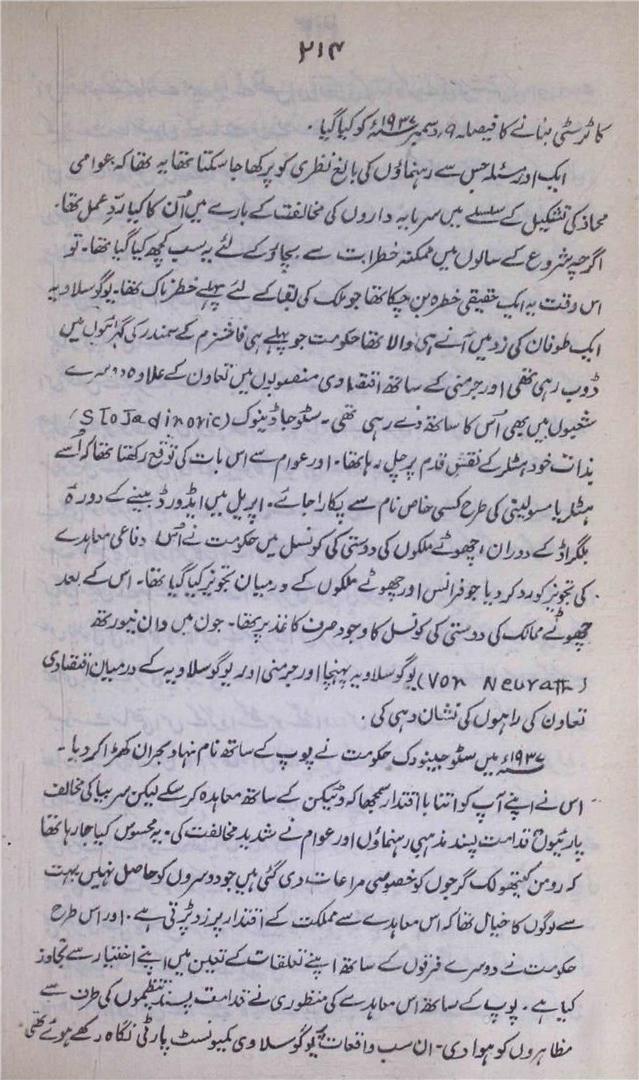 ۲۱۴
کا ٹرسٹی بنانے کا فیصلہ ۹ دسمبر ۱۹۳۷ء کو کیا گیا۔
ایک اور مسئلہ جس سے رہنماؤں کی بالغ نظری کو پرکھا جا سکتا تھا یہ تھا کہ عوامی
محاذ کی تشکیل کے سلسلے میں سرمایہ داروں کی مخالفت کے بارے میں اُن کا کیا ردِّ عمل تھا۔
اگرچہ شروع کے سالوں میں ممکنہ خطرات سے بچاؤ کے لئے یہ سب کچھ کیا گیا تھا۔ تو
اس وقت یہ ایک حقیقی خطرہ بن چکا تھا جو ملک کی بقا کے لئے پہلے خطرناک تھا۔ یوگوسلاویہ
ایک طوفان کی زد میں آنے ہی والا تھا حکومت جو پہلے ہی فاشزم کے سمندر کی گہرائیوں میں
ڈوب رہی تھی اور جرمنی کے ساتھ اقتصادی منصوبوں میں تعاون کے علاوہ دوسرے
شعبوں میں بھی اُس کا ساتھ دے رہی تھی۔ سٹوجاڈینوک (Stojadinovic)
بذات خود ہٹلر کے نقشِ قدم پر چل رہا تھا۔ اور عوام سے اس بات کی توقع رکھتا تھا کہ اُسے
ہٹلر یا مسولینی کی طرح کسی خاص نام سے پکارا جائے۔ اپریل میں ایڈورڈ بینے کے دورہ
بلگراڈ کے دوران، چھوٹے ملکوں کی دوستی کی کونسل میں حکومت نے اُس دفاعی معاہدے
کی تجویز کو رد کر دیا جو فرانس اور چھوٹے ملکوں کے درمیان تجویز کیا گیا تھا۔ اس کے بعد
چھوٹے ممالک کی دوستی کی کونسل کا وجود صرف کاغذ پر تھا۔ جون میں وان نیورتھ
(Von Neurath) یوگوسلاویہ پہنچا اور جرمنی اور یوگوسلاویہ کے درمیان اقتصادی
تعاون کی راہوں کی نشان دہی کی۔
۱۹۳۷ء میں سٹوجینوک حکومت نے پوپ کے ساتھ نام نہاد بحران کھڑا کر دیا۔
اس نے اپنے آپ کو اتنا با اقتدار سمجھا کہ ویٹیکن کے ساتھ معاہدہ کر سکے لیکن سربیا کی مخالف
پارٹیوں قدامت پسند مذہبی رہنماؤں اور عوام نے شدید مخالفت کی۔ یہ محسوس کیا جا رہا تھا
کہ رومن کیتھولک گرجوں کو خصوصی مراعات دی گئی ہیں جو دوسروں کو حاصل نہیں بہت
سے لوگوں کا خیال تھا کہ اس معاہدے سے مملکت کے اقتدار پر زد پڑتی ہے۔ اور اس طرح
حکومت نے دوسرے فرقوں کے ساتھ اپنے تعلقات کے تعین میں اپنے اختیار سے تجاوز
کیا ہے۔ پوپ کے ساتھ اس معاہدے کی منظوری نے قدامت پسند تنظیموں کی طرف سے
مظاہروں کو ہوا دی۔ ان سب واقعات پر یوگوسلاوی کمیونسٹ پارٹی نگاہ رکھے ہوئے تھی